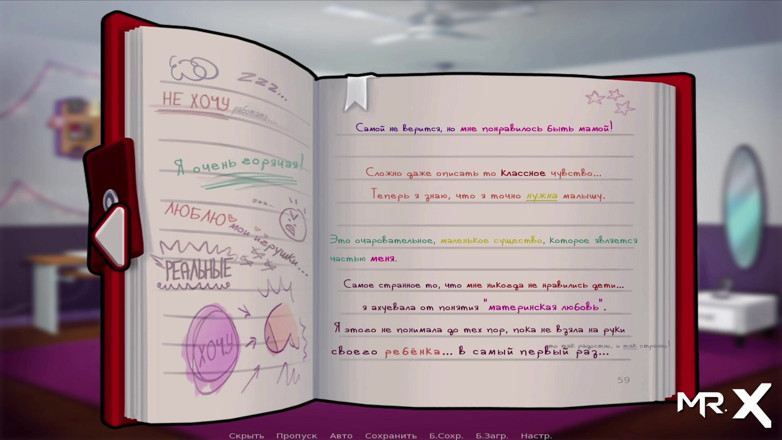 zzz...
НЕ ХОЧУ
работать...
Я очень горячая!
ЛЮБЛЮ
мои игрушки...
РЕАЛЬНЫЕ
ХОЧУ
Самой не верится, но мне понравилось быть мамой!
Сложно даже описать то классное чувство...
Теперь я знаю, что я точно нужна малышу.
Это очаровательное, маленькое существо, которое является
частью меня.
Самое странное то, что мне никогда не нравились дети...
я ахуевала от понятия "материнская любовь".
Я этого не понимала до тех пор, пока не взяла на руки
своего ребёнка... в самый первый раз...
59
MR. X
Скрыть Пропуск Авто Сохранить Б.Сохр. Б.Загр. Настр.